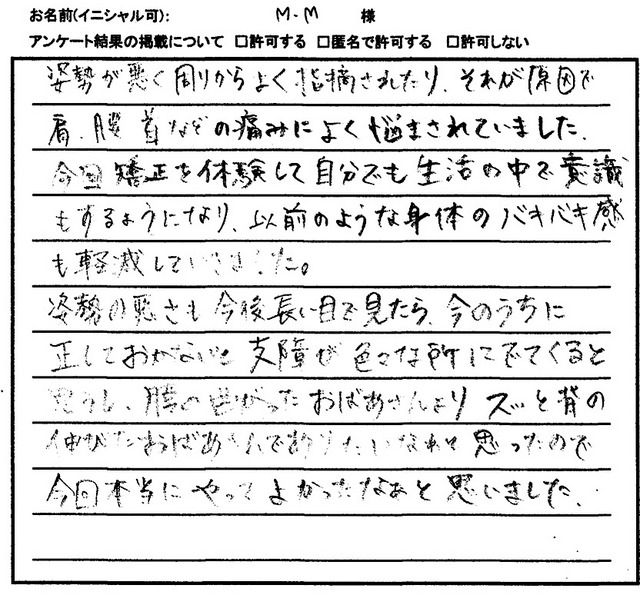 お名前(イニシャル可): M.M 様
アンケート結果の掲載について □許可する □匿名で許可する □許可しない
姿勢が悪く周りからよく指摘されたり、それが原因で
肩、腰、首などの痛みによく悩まされていました。
今回矯正を体験して自分でも生活の中で意識
もするようになり、以前のような身体のバキバキ感
も軽減していきました。
姿勢の悪さも今後長い目で見たら、今のうちに
正しておかないと支障が色々な所にでてくると
思うし、腰の曲がったおばあさんよりズッと背の
伸びたおばあさんでありたいなぁと思ったので
今回本当にやってよかったなぁと思いました。